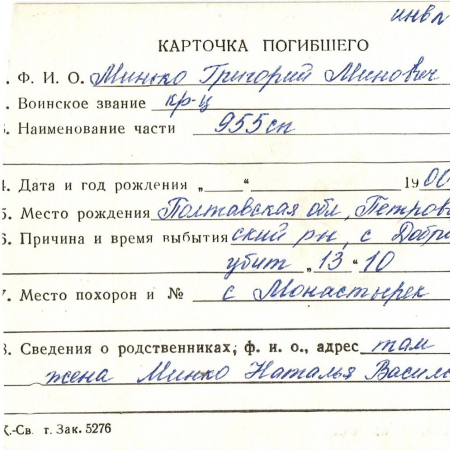 инвл
КАРТОЧКА ПОГИБШЕГО
. Ф. И. О. Минько Григорий Минович
. Воинское звание кр-ц
3. Наименование части 955 сп
4. Дата и год рождения „ “ 1900
5. Место рождения Полтавская обл, Петров
6. Причина и время выбытия ский рн, с Добр
убит „13 “ 10
7. Место похорон и № с Монастырек
8. Сведения о родственниках, ф. и. о., адрес там
жена Минко Наталья Васил
К.-Св. т. Зак. 5276